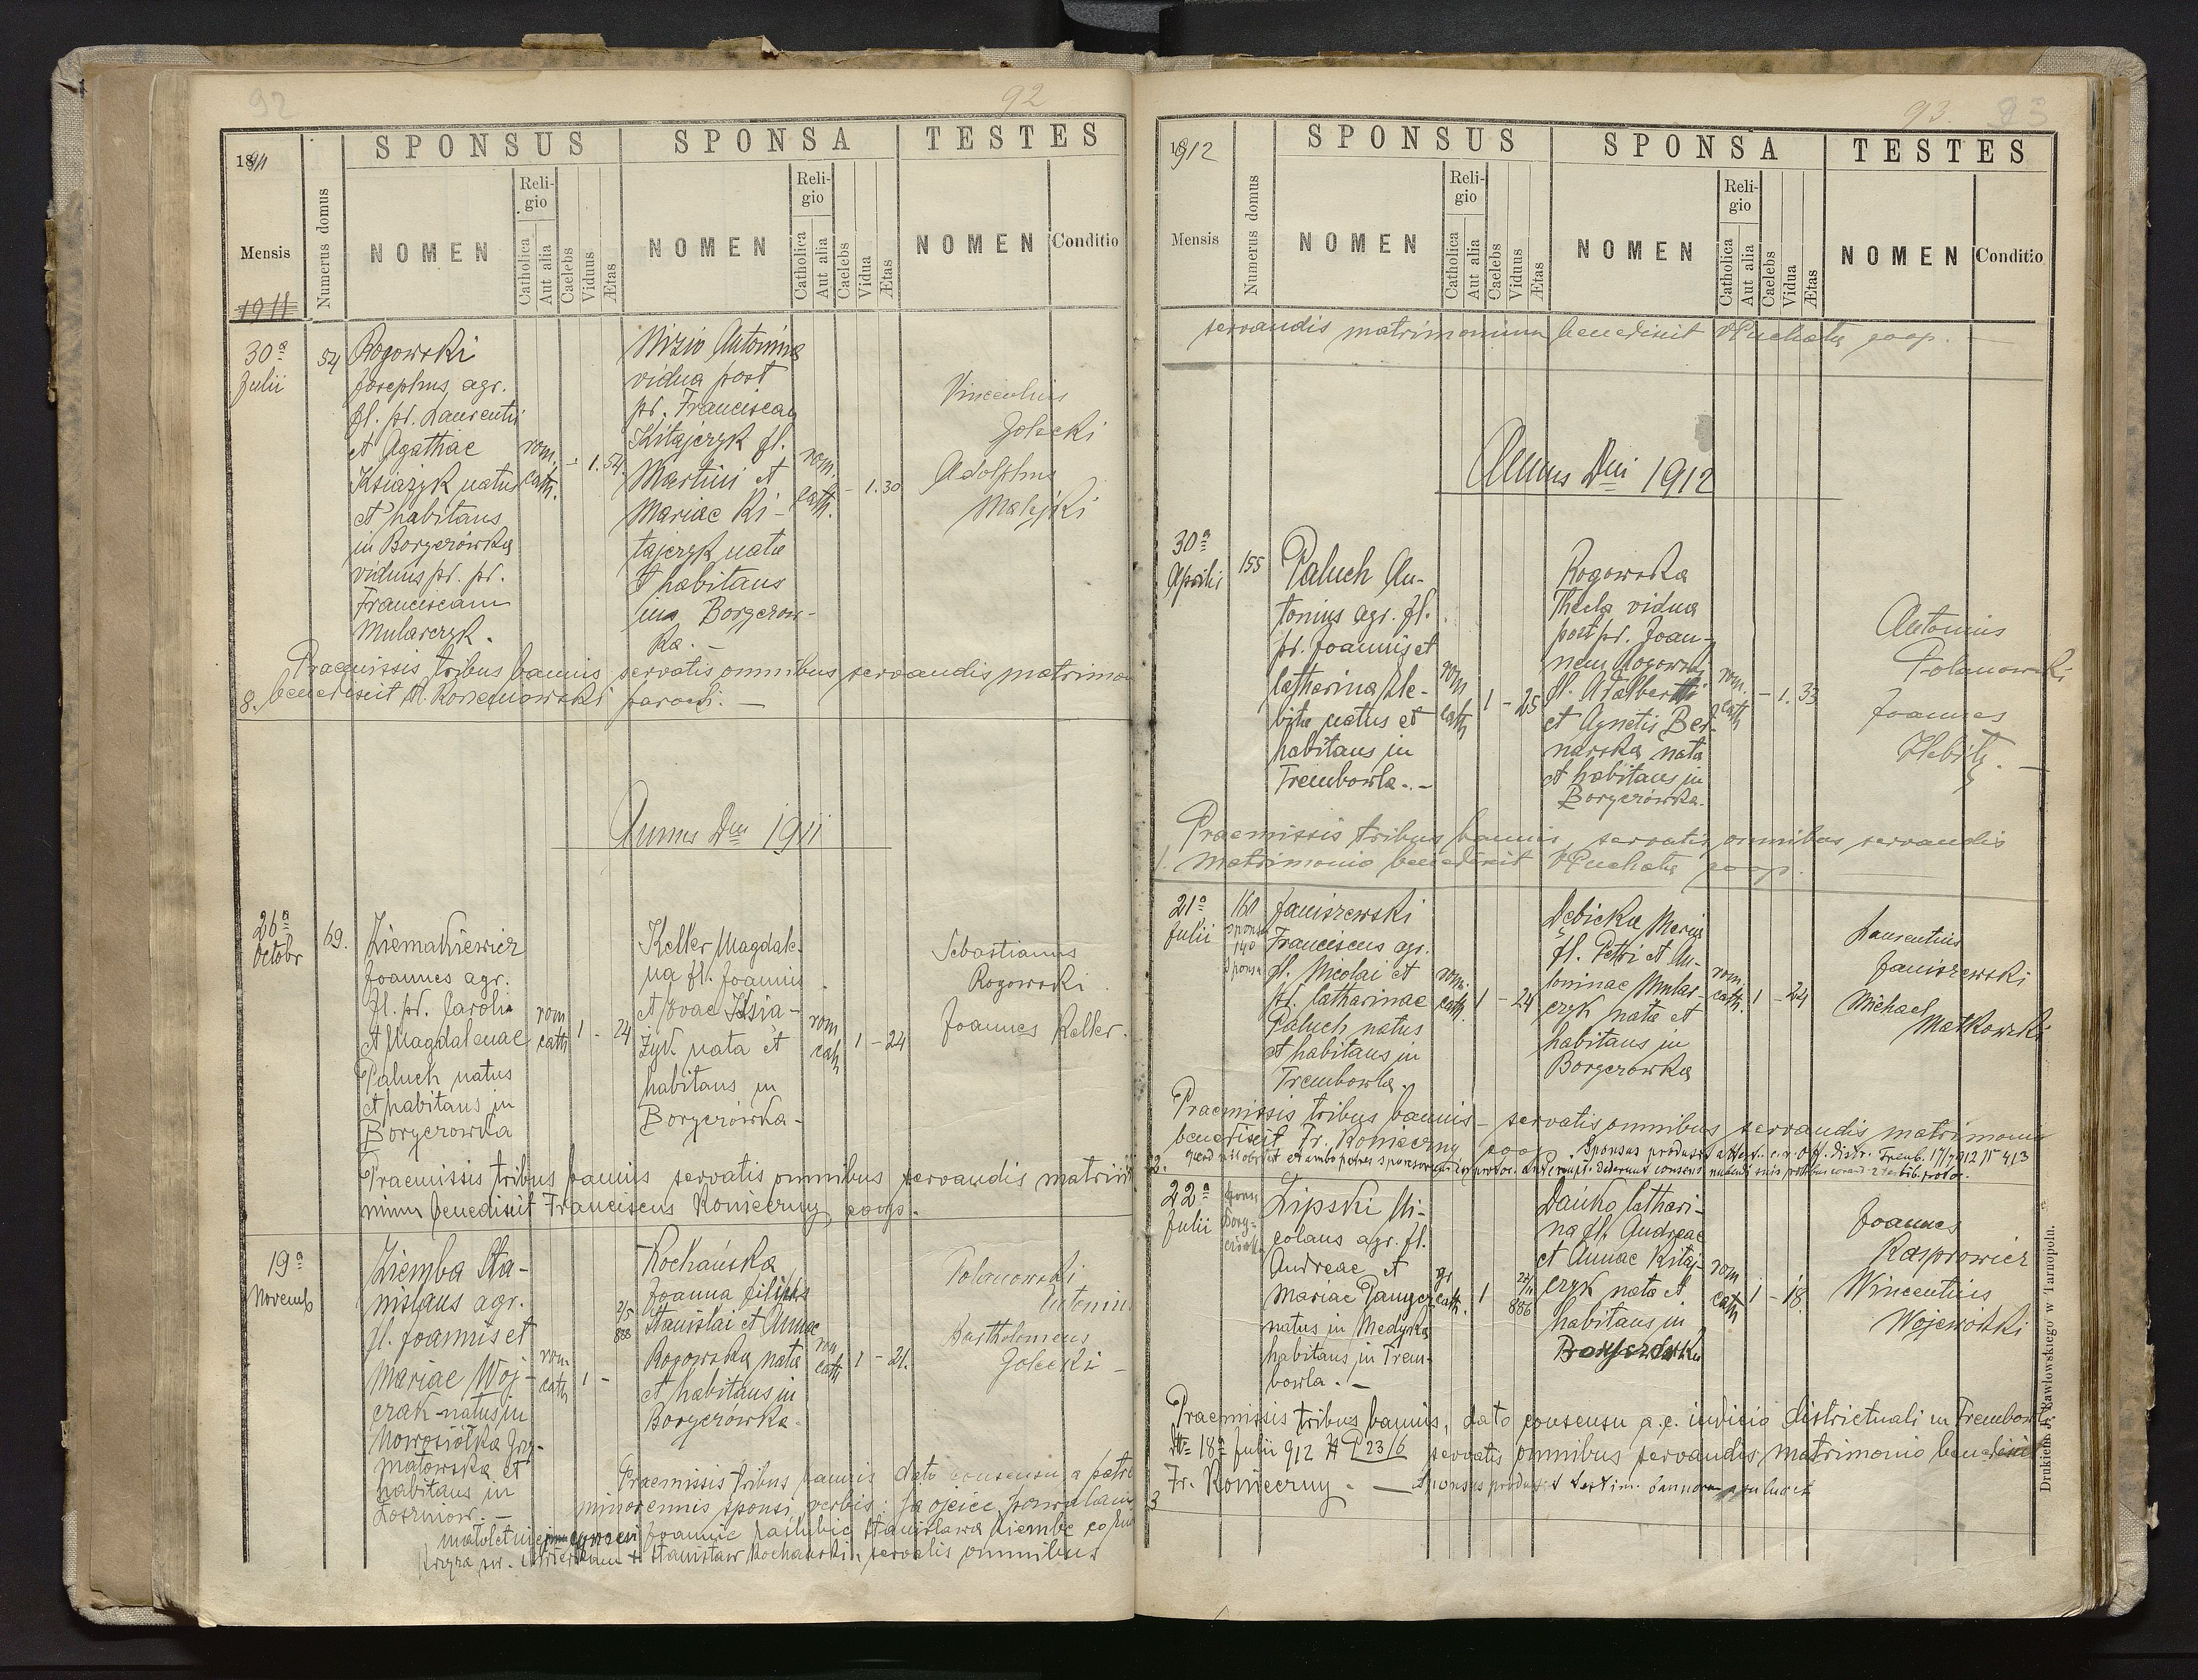 92
92
SPONSUS
SPONSA
TESTES
1911
Mensis
Numerus domus
NOMEN
Religio
Catholica
Aut alia
Caelebs
Viduus
Ætas
NOMEN
Religio
Catholica
Aut alia
Caelebs
Vidua
Ætas
NOMEN
Conditio
1911
30a
Julii
54
Rogowski
Josephus agr.
fl. pr. Laurentii
et Agathae
Książyk natus
et habitans
in Borgerówka
viduus pr. pr.
Franciscam
Mularczyk.
rom.
cath.
- 1. 54.
Nizio Antonina
vidua post
pr. Franciscum
Kitajczyk fl.
Martini et
Mariae Ki-
tajczyk nata
et habitans
in Borgerow-
ka. -
rom.
cath.
- 1. 30
Vincentius
Golecki
Adolphus
Malejki
Praemissis tribus bannis servatis omnibus servandis matrimon
8. benedixit A. Konernowski paroch. -
Annus Dni 1911
26a
Octobr
69.
Ziemakiewicz
Joannes agr.
fl. pr. Caroli
et Magdalenae
Paluch natus
et habitans in
Borgerowka
rom
cath
1 - 24
Keller Magdale-
na fl. Joannis
et Evae Ksią-
żyk nata et
habitans in
Borgerówka -
rom
cath
1 - 24
Sebastianus
Rogowski
Joannes Keller.
Praemissis tribus bannis servatis omnibus servandis matri
nium benedixit Franciscus Konieczny coop.
19a
Novemb
Ziemba Sta-
nislaus agr.
fl. Joannis et
Mariae Woj-
czak natus in
Nowosiółka Grzy-
matowska et
habitans in
Łoszniow. -
rom
cath
1 -
Kochańska
Joanna filia
Stanislai et Annae
Rogowska nata
et habitans in
Borgerówka.
2/5
888
rom
cath
1 - 21.
Polanowski
Antoniu
Bartholomeus
Golecki -
Praemissis tribus bannis dato consensu a patre
minorennis sponsi verbis: Ja ojciec pozwalam
małoletniej Joannie zaślubić Stanisława Ziembę co
krzyża św. stwierdzam + Stanisław Kochański, servatis omnibus
93.
93
SPONSUS
SPONSA
TESTES
1912
Mensis
Numerus domus
NOMEN
Religio
Catholica
Aut alia
Caelebs
Viduus
Ætas
NOMEN
Religio
Catholica
Aut alia
Caelebs
Vidua
Ætas
NOMEN
Conditio
servandis matrimonium benedixit VPuchała coop. -
Annus Dni 1912
30a
Aprilis
155
Paluch An-
tonius agr. fl.
pr. Joannis et
Catharina Hle-
bita natus et
habitans in
Trembowla. -
rom
cath
1 - 25
Rogowska
Thecla vidua
post pr. Joan-
nem Rogowski
fl. Adalberti
et Agnetis Bed-
narska nata
et habitans in
Borgerówka.
rom.
cath
- 1. 33
Antonius
Polanowski
Joannes
Hlebity. -
Praemissis tribus bannis, servatis omnibus servandis
1. matrimonio benedixit VPuchała coop.
21a
Julii
160
sponsi
140
sponsa
Janiszewski
Franciscus agr.
fl. Nicolai et
pr. Catharinae
Paluch natus
et habitans in
Trembowla.
rom.
cath.
1 - 24
Dębicka Maria
fl. Petri et An-
toninae Mular-
czyk nata et
habitans in
Borgerowka
rom.
cath.
1 - 24
Laurentius
Janiszewski
Michael
Matkowski
Praemissis tribus bannis - servatis omnibus servandis matrimonio
benedixit Fr. Konieczny coop. Sponsus produxit attest. c. r. Off. distr. Tremb. 17/7 912
2.
22a
Julii
Lipski Ni-
colaus agr. fl.
Andreae et
Mariae Panycz
natus in Medyka
habitans in Trem-
bowla. -
gr
cath.
1
Dańko Cathari-
na fl. Andreae
et Annae Kitaj-
czyk nata et
habitans in
Borgerówka
22/11
886
rom
cath
1 - 18
Joannes
Kasprowicz
Wincentius
Wojewódki
Praemissis tribus bannis, dato consensu a c. r. iudicio districtuali in Trembowla
dto 18a Julii 912 servatis omnibus servandis matrimonio benedixit
Fr. Konieczny. - Sponsus produxit testim. bannorum
3
Drukiem J. Pawłowskiego w Tarnopolu.